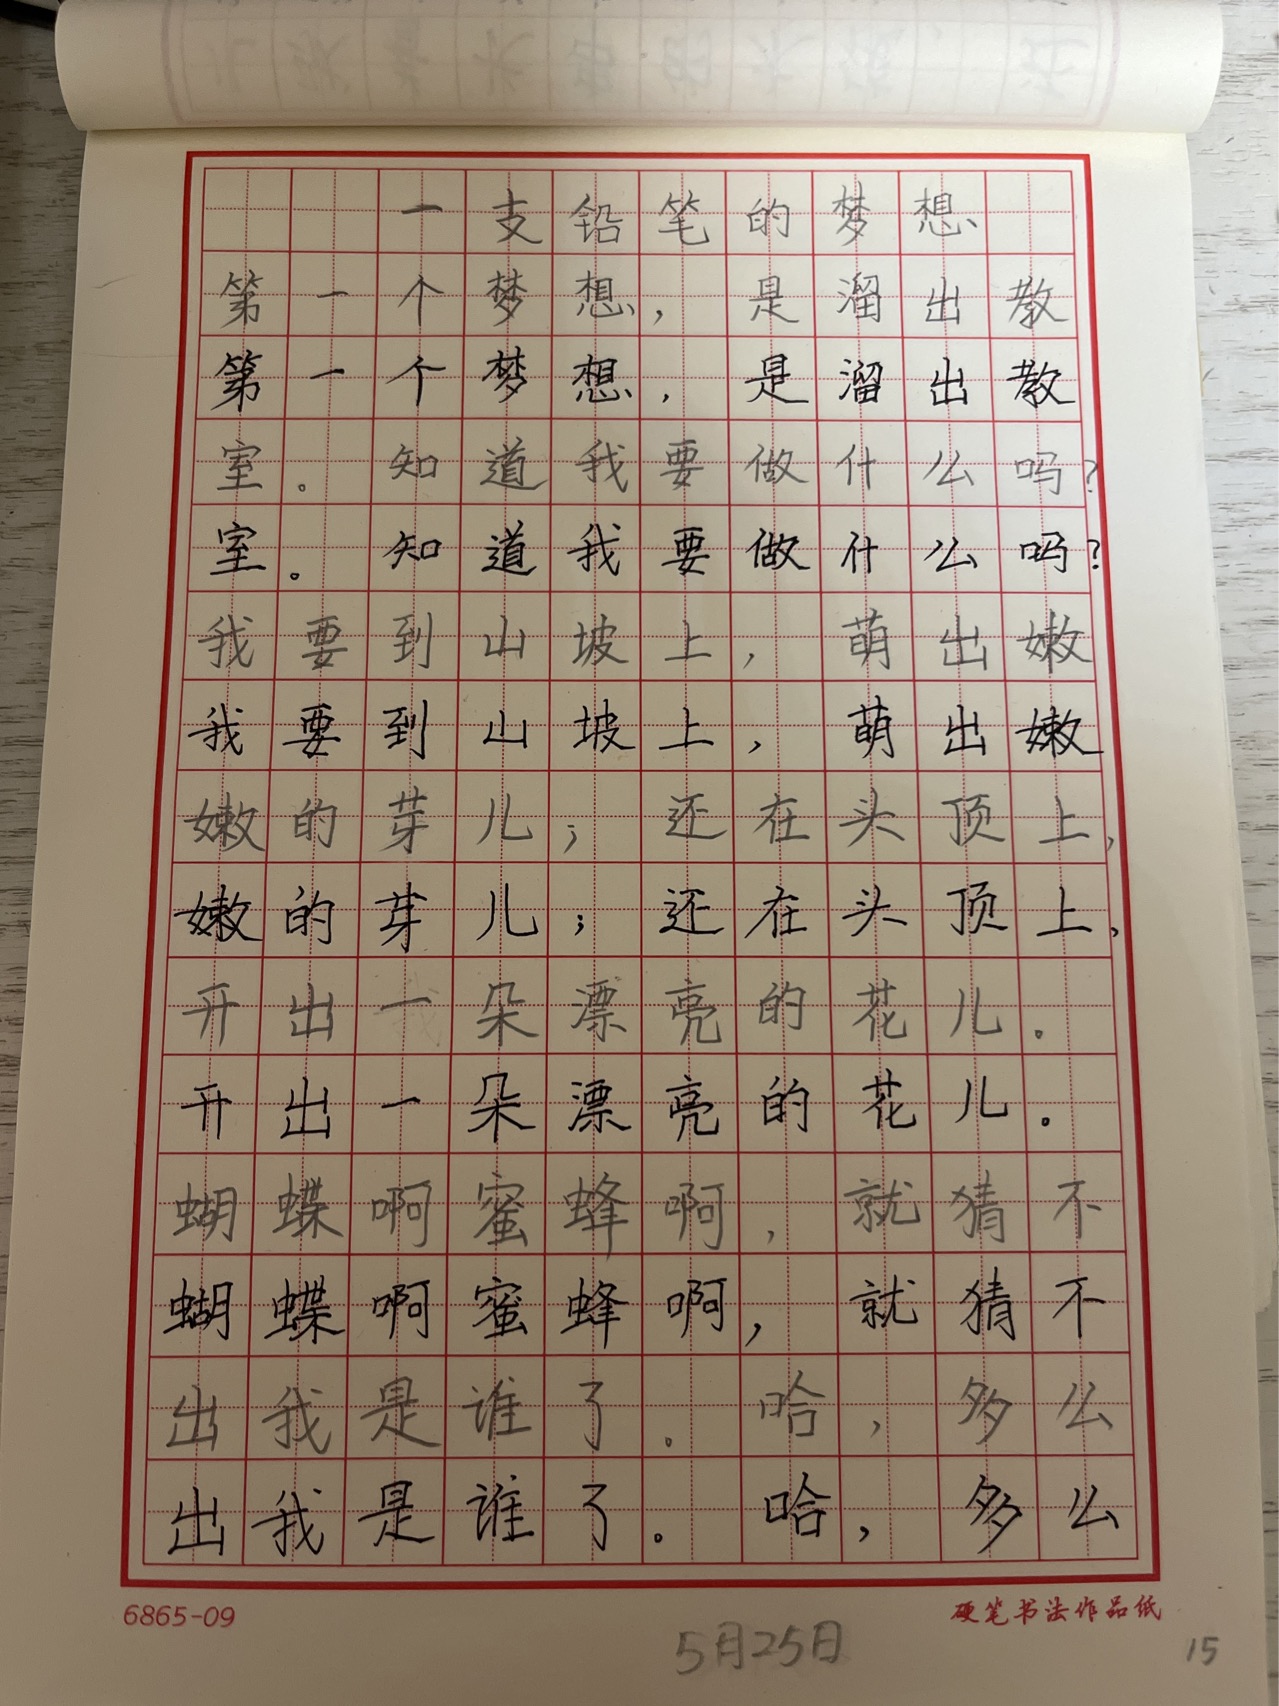 一支铅笔的梦想
第一个梦想，是溜出教
第一个梦想，是溜出教
室。知道我要做什么吗？
室。知道我要做什么吗？
我要到山坡上，萌出嫩
我要到山坡上，萌出嫩
嫩的芽儿；还在头顶上，
嫩的芽儿；还在头顶上，
开出一朵漂亮的花儿。
开出一朵漂亮的花儿。
蝴蝶啊蜜蜂啊，就猜不
蝴蝶啊蜜蜂啊，就猜不
出我是谁了。哈，多么
出我是谁了。哈，多么
6865-09 硬笔书法作品纸
5月25日
15